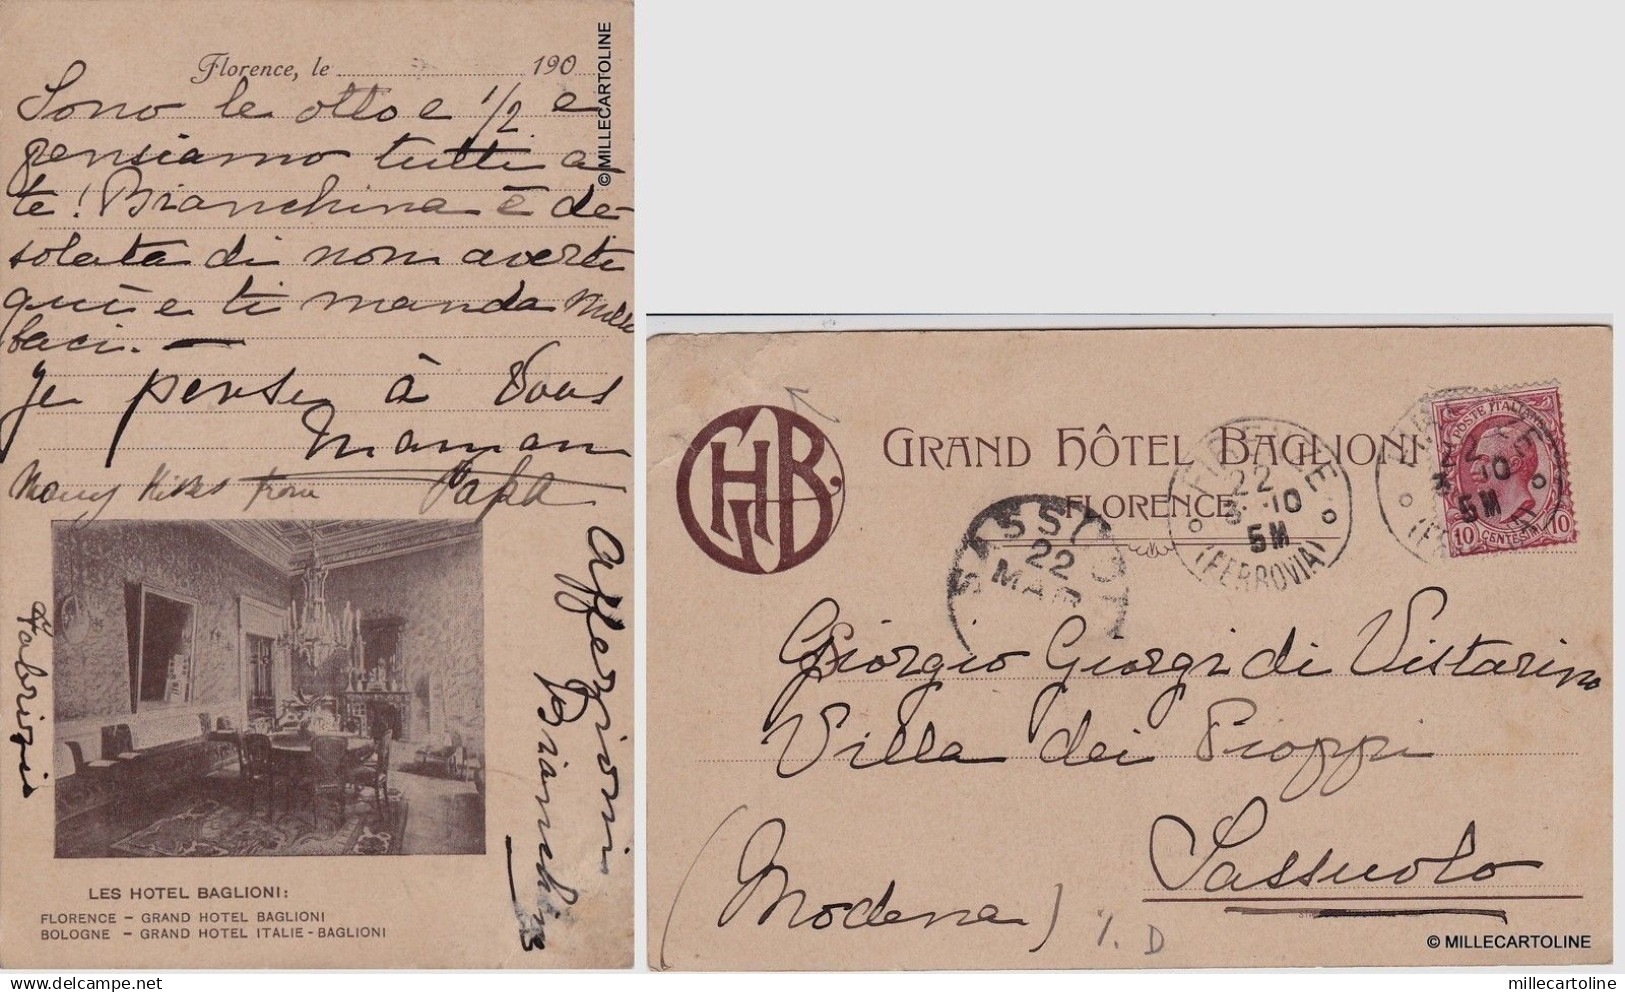 Florence, le 190
Sono le otto e 1/2 e
pensiamo tutti a
te! Bianchina è de-
solata di non averti
qui e ti manda mille
baci. —
Je pense à Vous
Maman
Many Kisses from Papa
Affezioni
Bianchina
Fabrizio
LES HOTEL BAGLIONI:
FLORENCE – GRAND HOTEL BAGLIONI
BOLOGNE – GRAND HOTEL ITALIE-BAGLIONI
© MILLECARTOLINE
GHB.
GRAND HÔTEL BAGLIONI
FLORENCE
FIRENZE
22
3-10
5M
(FERROVIA)
22
3-10
5M
POSTE ITALIANE
10 CENTESIMI 10
SASSUOLO
22
MAR
Giorgio Giorgi di Vistarino
Villa dei Pioppi
Sassuolo
(Modena)
© MILLECARTOLINE
millecartoline